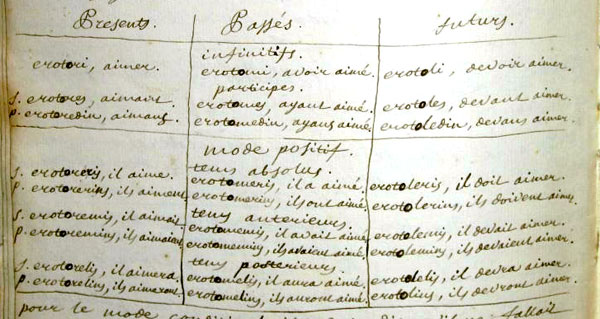 Presents. Passés. futurs.
infinitifs.
erotori, aimer. erotomi, avoir aimé. erotoli, devoir aimer.
participes.
s. erotores, aimant. erotomes, ayant aimé. erotoles, devant aimer.
p. erotoredin, aimans. erotomedin, ayans aimé. erotoledin, devans aimer.
mode positif.
tems absolus.
s. erotoreris, il aime. erotomeris, il a aimé. erotoleris, il doit aimer.
p. erotorerins, ils aiment. erotomerins, ils ont aimé. erotolerins, ils doivent aimer.
tems anterieurs.
s. erotoremis, il aimait. erotomemis, il avait aimé. erotolemis, il devait aimer.
p. erotoremins, ils aimaient. erotomemins, ils avaient aimé. erotolemins, ils devaient aimer.
tems posterieurs
s. erotorelis, il aimera. erotomelis, il aura aimé. erotolelis, il devra aimer.
p. erotorelins, ils aimeront. erotomelins, ils auront aimé. erotolelins, ils devront aimer.
pour le mode fallait